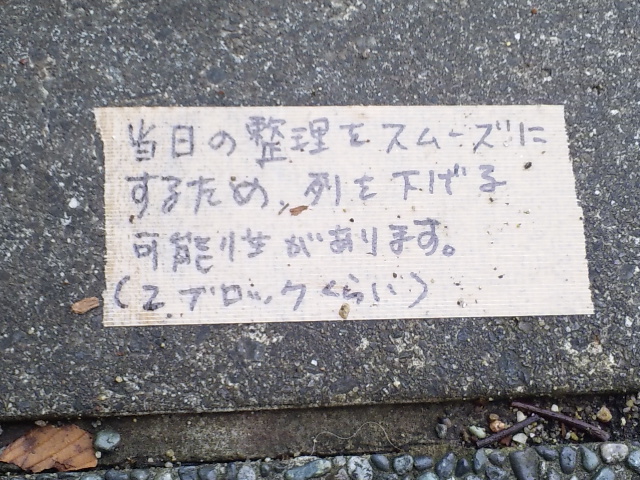 当日の整理をスムーズに
するため、列を下げる
可能性があります。
(2ブロックくらい)